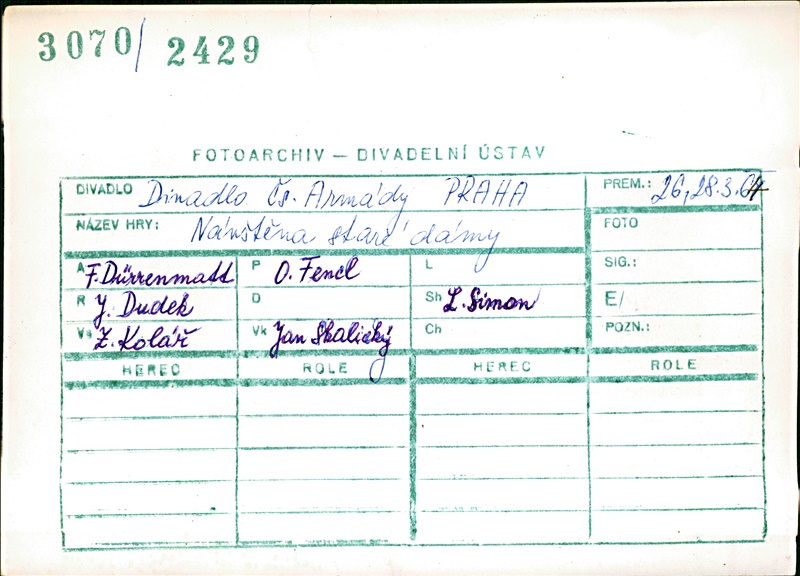 3070/ 2429
FOTOARCHIV — DIVADELNÍ ÚSTAV
DIVADLO Divadlo čs. Armády PRAHA PREM.: 26., 28.3.64
NÁZEV HRY: Návštěva staré dámy FOTO
A F. Dürrenmatt P O. Fencl L SIG.:
R J. Dudek D Sh L. Simon E/
Vs Z. Kolář Vk Jan Skalický Ch POZN.:
HEREC ROLE HEREC ROLE